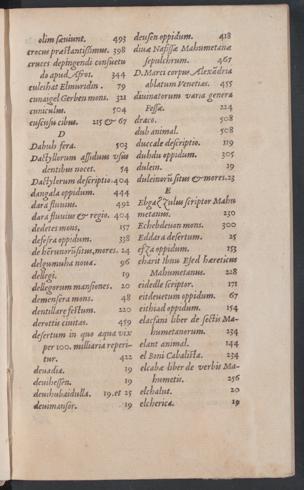 olim sæuiunt. 493
crocus præstantissimus. 398
cruces depingendi consuetu
do apud Afros. 344
culeihat Elmuridin. 79
cunaigel Gerben mons. 321
cuniculus. 504
cuscusu cibus. 215 & 67
D
Dabuh fera. 503
Dactyllorum assiduus vsus
dentibus nocet. 54
Dactylorum descriptio. 404
dangala oppidum. 444
dara fluuius. 492
dara fluuius & regio. 404
dedetes mons, 157
desesra oppidum. 338
de situs, mores. 24
delgumuha noua. 96
dellegi. 19
dellegorum mansiones. 20
demensera mons. 48
dentillare festum. 220
derottis ciuitas. 459
desertum in quo aqua vix
per 100. milliaria reperi-
tur. 422
deuadiæ. 19
deuihessen. 19
deuihubaidulla. 19. et 25
deuimansor. 19
deusen oppidum. 418
diuæ Nafissæ Mahumetanæ
sepulchrum. 467
D. Marci corpus Alexādria
ablatum Venetias. 455
diuinatorum varia genera
Fessæ. 224
draco. 508
dub animal. 508
duccale descriptio. 119
dubdu oppidum. 305
dulein. 19
situs & mores. 23
E
scriptor Mahu
metanus. 230
Echebdeuon mons. 300
Eddara desertum. 25
oppidum. 153
eharit Ibnu Esed hæreticus
Mahumetanus. 228
eidelle scriptor. 171
eitdeuetum oppidum. 67
eithiad oppidum. 154
elacfani liber de sectis Ma-
humetanorum. 234
elant animal. 144
el Boni Cabalista. 234
elcabæ liber de verbis Ma-
humetis. 256
elchalut. 20
elcherica. 19